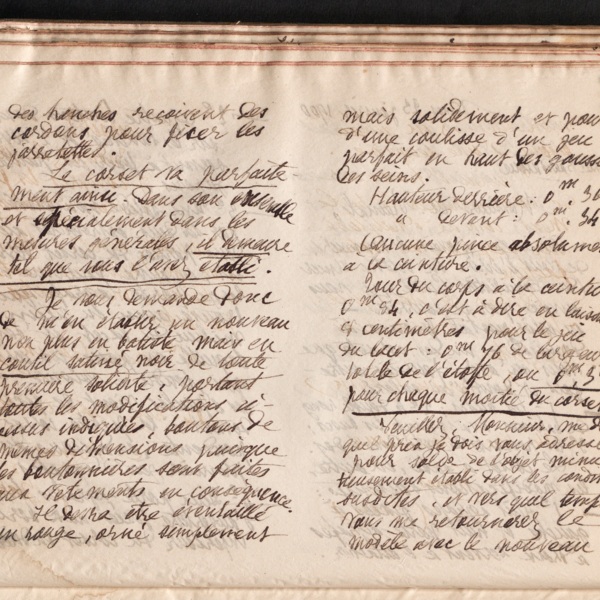 des hanches reçoivent des
cordons pour fixer les
jarretelles.
Le corset va parfaite-
ment ainsi. Dans son ensemble
et spécialement dans les
mesures générales, il demeure
tel que vous l'avez établi.
Je vous demande donc
de m'en établir un nouveau
non plus en batiste mais en
coutil satiné noir de toute
première solidité, portant
toutes les modifications ci
dessus indiquées, boutons de
mêmes dimensions puisque
les boutonnières sont faites
aux vêtements en conséquence.
Il devra être éventaillé
en rouge, orné simplement
mais solidement et pour
d'une coulisse d'un jeu
parfait en haut des gousse
les seins.
Hauteur derrière : 0m. 30
" devant : 0m. 34
(aucune pince absolume
à la ceinture.
Tour du corps à la ceintu
0m 54, c'est à dire en laiss
centimètres pour le jeu
du lacet : 0m 76 de largeur
totale de l'étoffe, ou
pour chaque moitié du corset
Veuillez, Monsieur, me d
quel prix je dois vous adresse
pour solde de l'objet minu
tieusement établi dans les condit
susdites, et vers quel temps
vous me retournerez le
modèle avec le nouveau